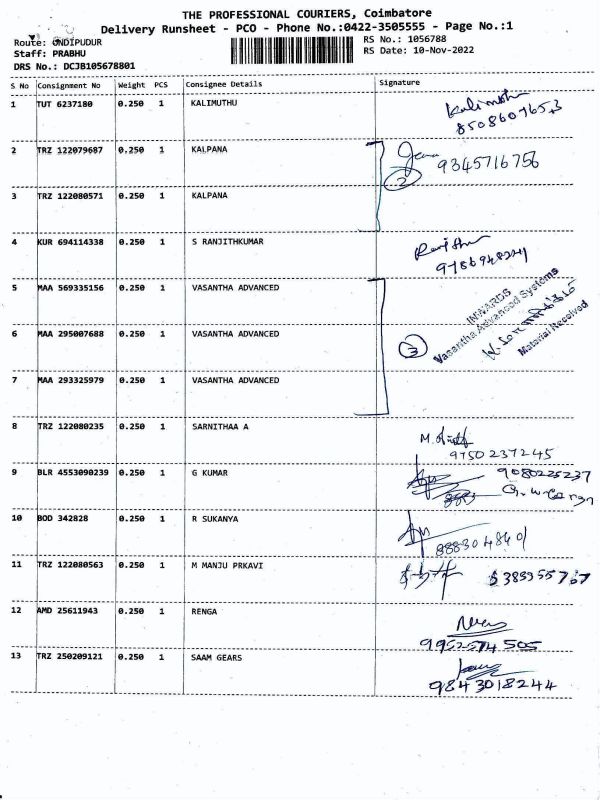 THE PROFESSIONAL COURIERS, Coimbatore
Delivery Runsheet - PCO - Phone No.:0422-3505555 - Page No.:1
Route: ONDIPUDUR RS No.: 1056788
Staff: PRABHU RS Date: 10-Nov-2022
DRS No.: DCJB105678801
S No Consignment No Weight PCS Consignee Details Signature
1 TUT 6237180 0.250 1 KALIMUTHU
2 TRZ 122079687 0.250 1 KALPANA
2 9345716756
3 TRZ 122080571 0.250 1 KALPANA
4 KUR 694114338 0.250 1 S RANJITHKUMAR
5 MAA 569335156 0.250 1 VASANTHA ADVANCED
INWARDS
Vasantha Advanced Systems
6 MAA 295007688 0.250 1 VASANTHA ADVANCED
3
Material Received
7 MAA 293325979 0.250 1 VASANTHA ADVANCED
8 TRZ 122080235 0.250 1 SARNITHAA A
9750237245
9 BLR 4553090239 0.250 1 G KUMAR
9080225237
10 BOD 342828 0.250 1 R SUKANYA
11 TRZ 122080563 0.250 1 M MANJU PRKAVI
12 AMD 25611943 0.250 1 RENGA
9952574505
13 TRZ 250209121 0.250 1 SAAM GEARS
9843018244